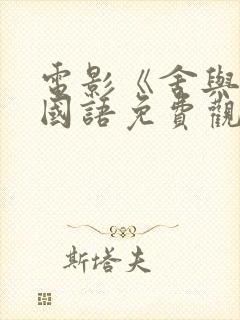 電影《舍與
國語免費觀
斯塔夫